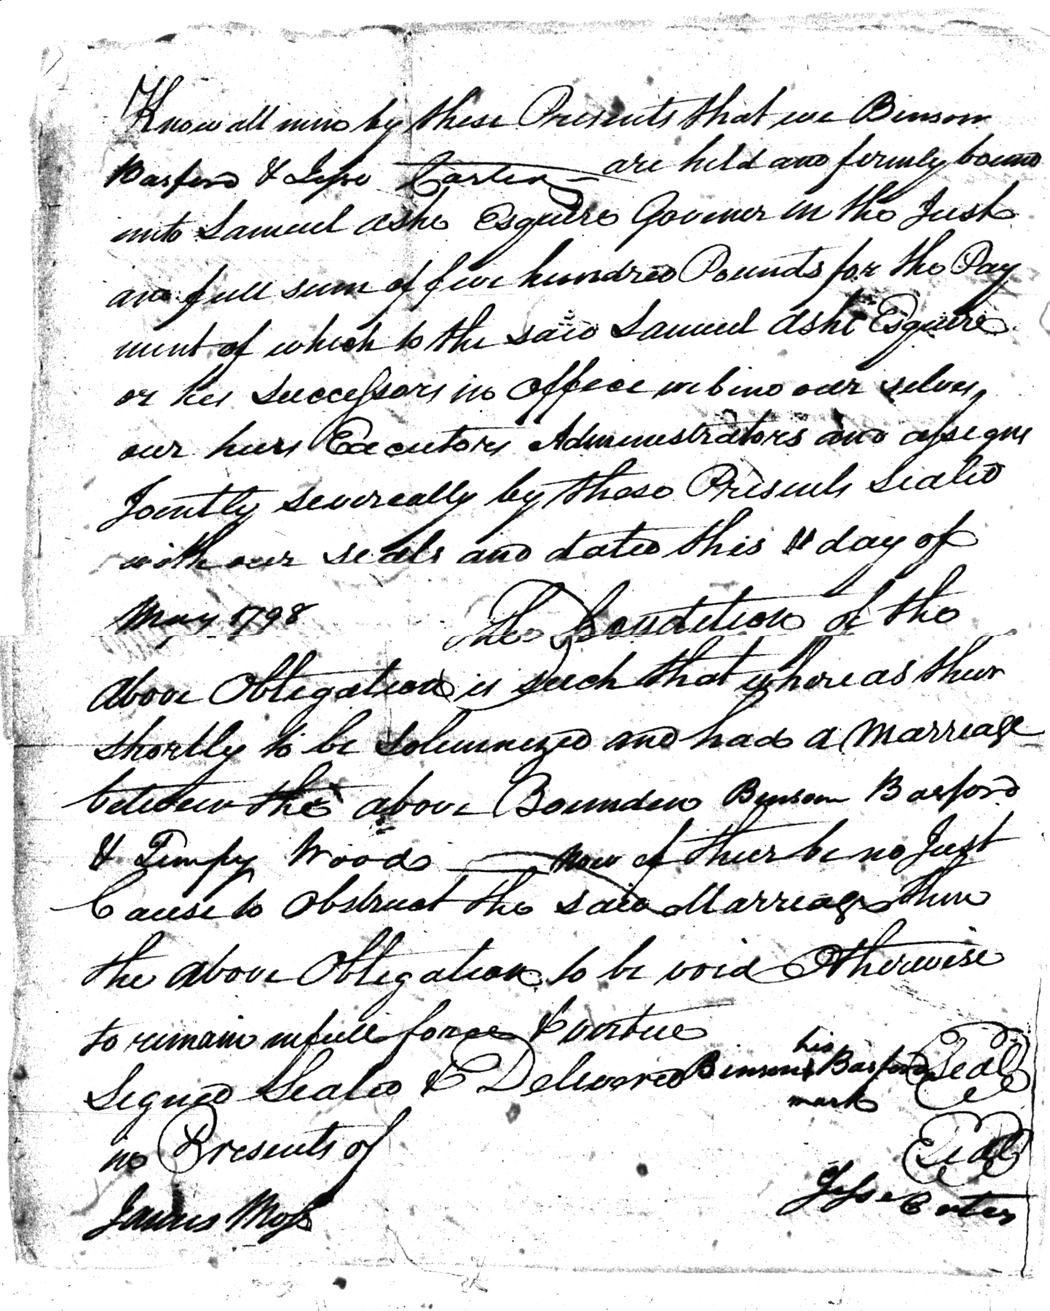 Know all men by these Presents that we Binsom
Basford & Jesse Carter are held and firmly bound
unto Samuel Ashe Esquire Govener in the Just
and full sum of five hundred Pounds for the Pay
ment of which to the said Samuel Ashe Esquire
or his Successors in office we bind our selves,
our heirs Executors Administrators and assigns
Jointly severeally by these Presents sealed
with our seals and dated this 11 day of
May 1798 The Condition of the
above Obligation is such that whereas their
shortly to be solemnezed and had a Marreage
between the above Bounden Binsom Basford
& Tempy Wood now if their be no Just
Cause to Obstruct the said Marreage then
the above Obligation to be void Otherwise
to remain in full force & virtue
Signed Sealed & Delivered Binsom his Basford Seal
mark
in Presents of Seal
James Moss Jesse Carter